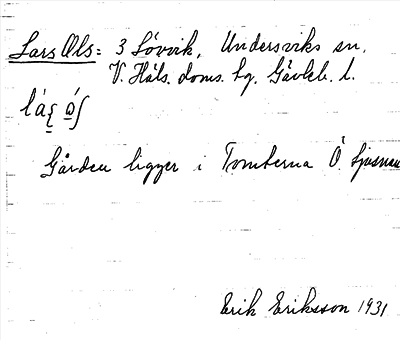 Lars Ols: 3 Lövvik, Undersviks sn,
V. Häls. doms. hg. Gävleb. l.
Gården ligger i Tomterna Ö. Ljusnan
Erik Eriksson 1931